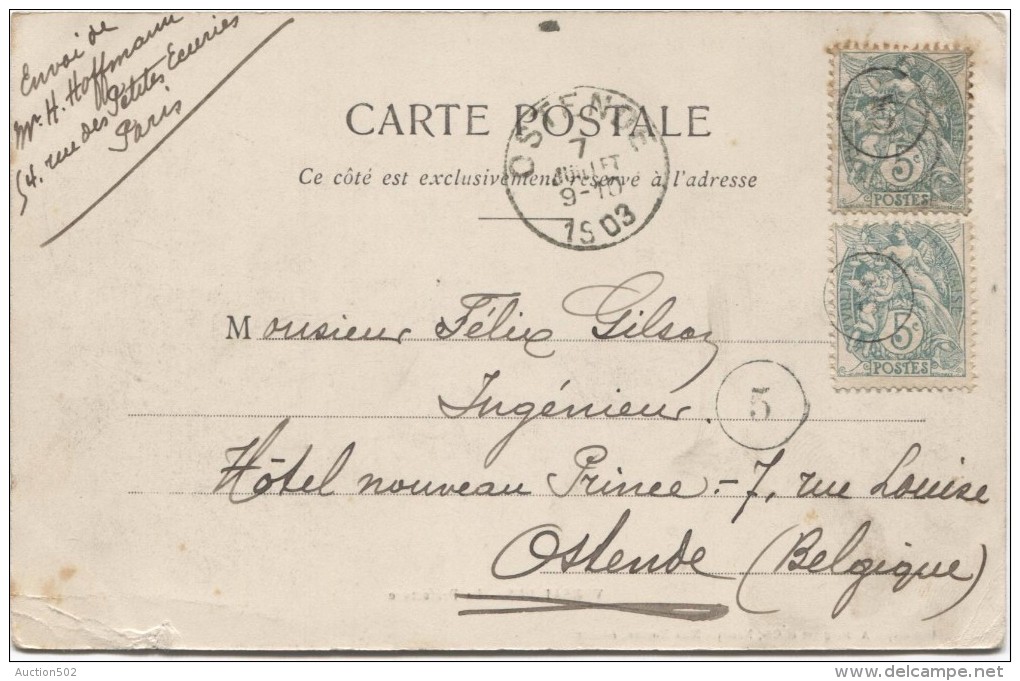 Envoi de
Mr. H. Hoffmann
54. rue des Petites Ecuries
Paris
CARTE POSTALE
Ce côté est exclusivement réservé à l'adresse
OSTENDE
7
JUILLET
9-10
1903
5c
POSTES
5c
POSTES
Monsieur Félix Gilson
Ingénieur.
5
Hôtel nouveau Prince - 7, rue Louise
Ostende (Belgique)
Auction502